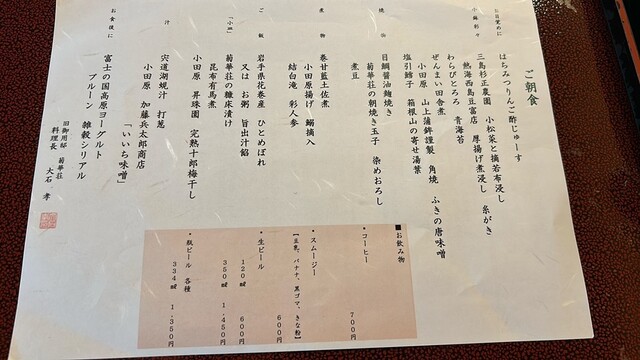 ご朝食
お目覚めに
はちみつりんご酢じゅーす
小鉢彩々
三島杉正農園 小松菜と摘若布浸し 糸がき
熱海西島豆富店 厚揚げ煮浸し
わらびとろろ 青海苔
ぜんまい田舎煮
小田原 山上蒲鉾謹製 角焼 ふきの唐味噌
塩引鱈子 箱根山の寄せ湯葉
焼物
目鯛醤油麹焼き
菊華荘の朝焼き玉子 染めおろし
煮豆
煮物
巻甘藍土佐煮
小田原揚げ 鰯摘入
結白滝 彩人参
ご飯
岩手県花巻産 ひとめぼれ
又は お粥 旨出汁餡
「小皿」
菊華荘の糠床漬け
昆布有馬煮
小田原 昇珠園 完熟十郎梅干し
汁
宍道湖蜆汁 打葱
小田原 加藤兵太郎商店
「いいち味噌」
お食後に
富士の国高原ヨーグルト
プルーン 雑穀シリアル
旧御用邸 菊華荘
料理長 大石 孝
■お飲み物
・コーヒー
700円
・スムージー
【豆乳、バナナ、黒ゴマ、きな粉】
600円
・生ビール
120㎖ 600円
350㎖ 1,450円
・瓶ビール 各種
334㎖ 1,350円